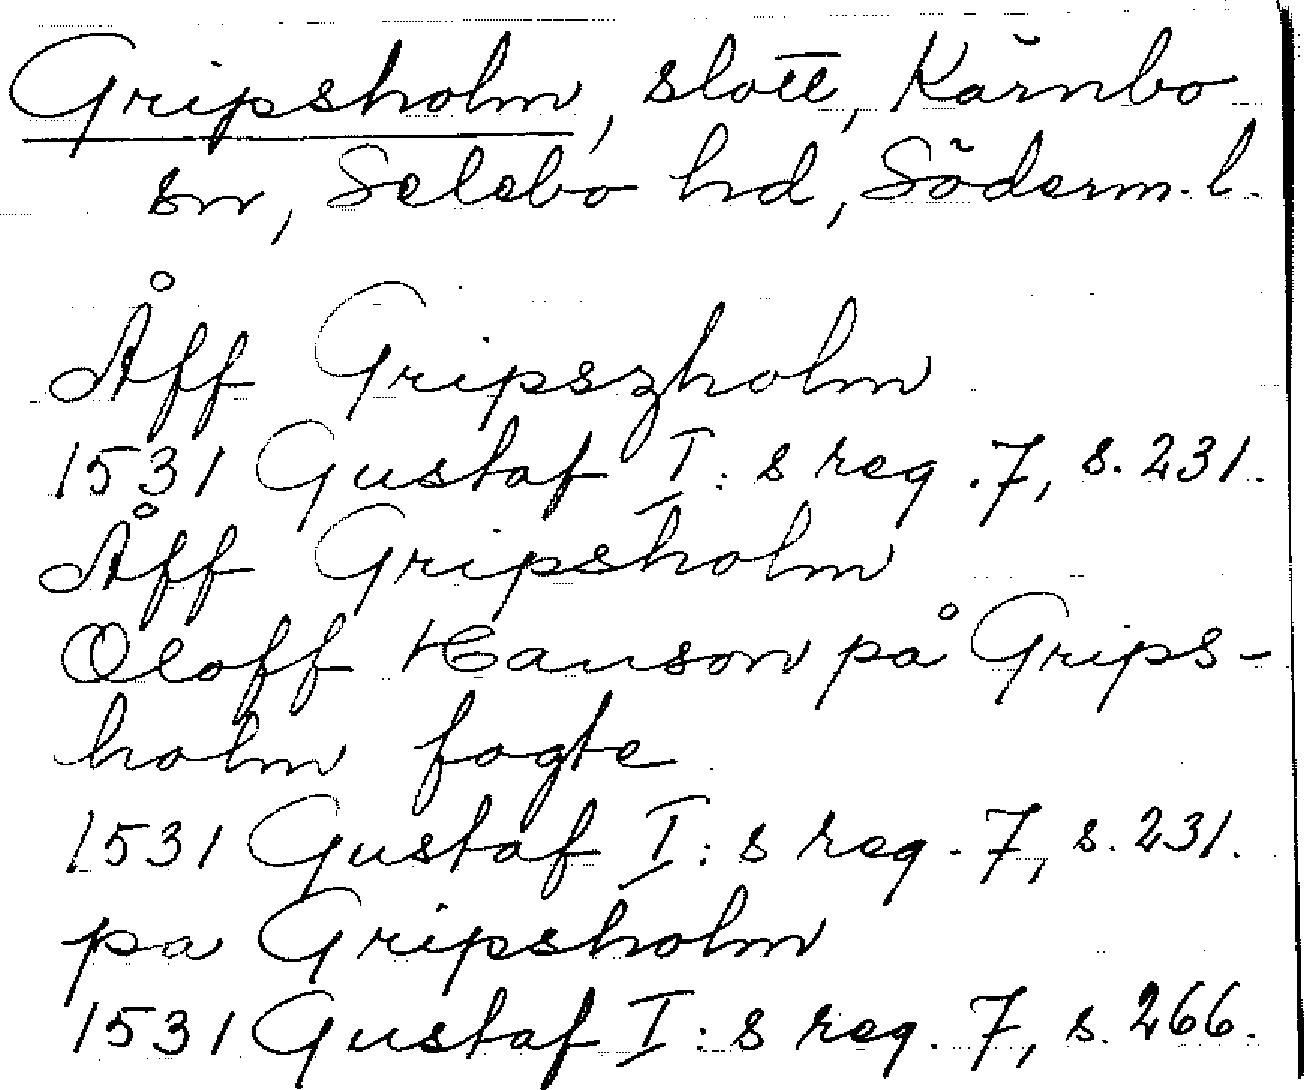 Gripsholm, slott, Kärnbo
sn, Selebo hd, Söderm. l.
Åff Gripszholm
1531 Gustaf I:s reg. 7, s. 231.
Åff Gripsholm
Oloff Hanson på Grips-
holm fogte
1531 Gustaf I:s reg. 7, s. 231.
pa Gripsholm
1531 Gustaf I:s reg. 7, s. 266.